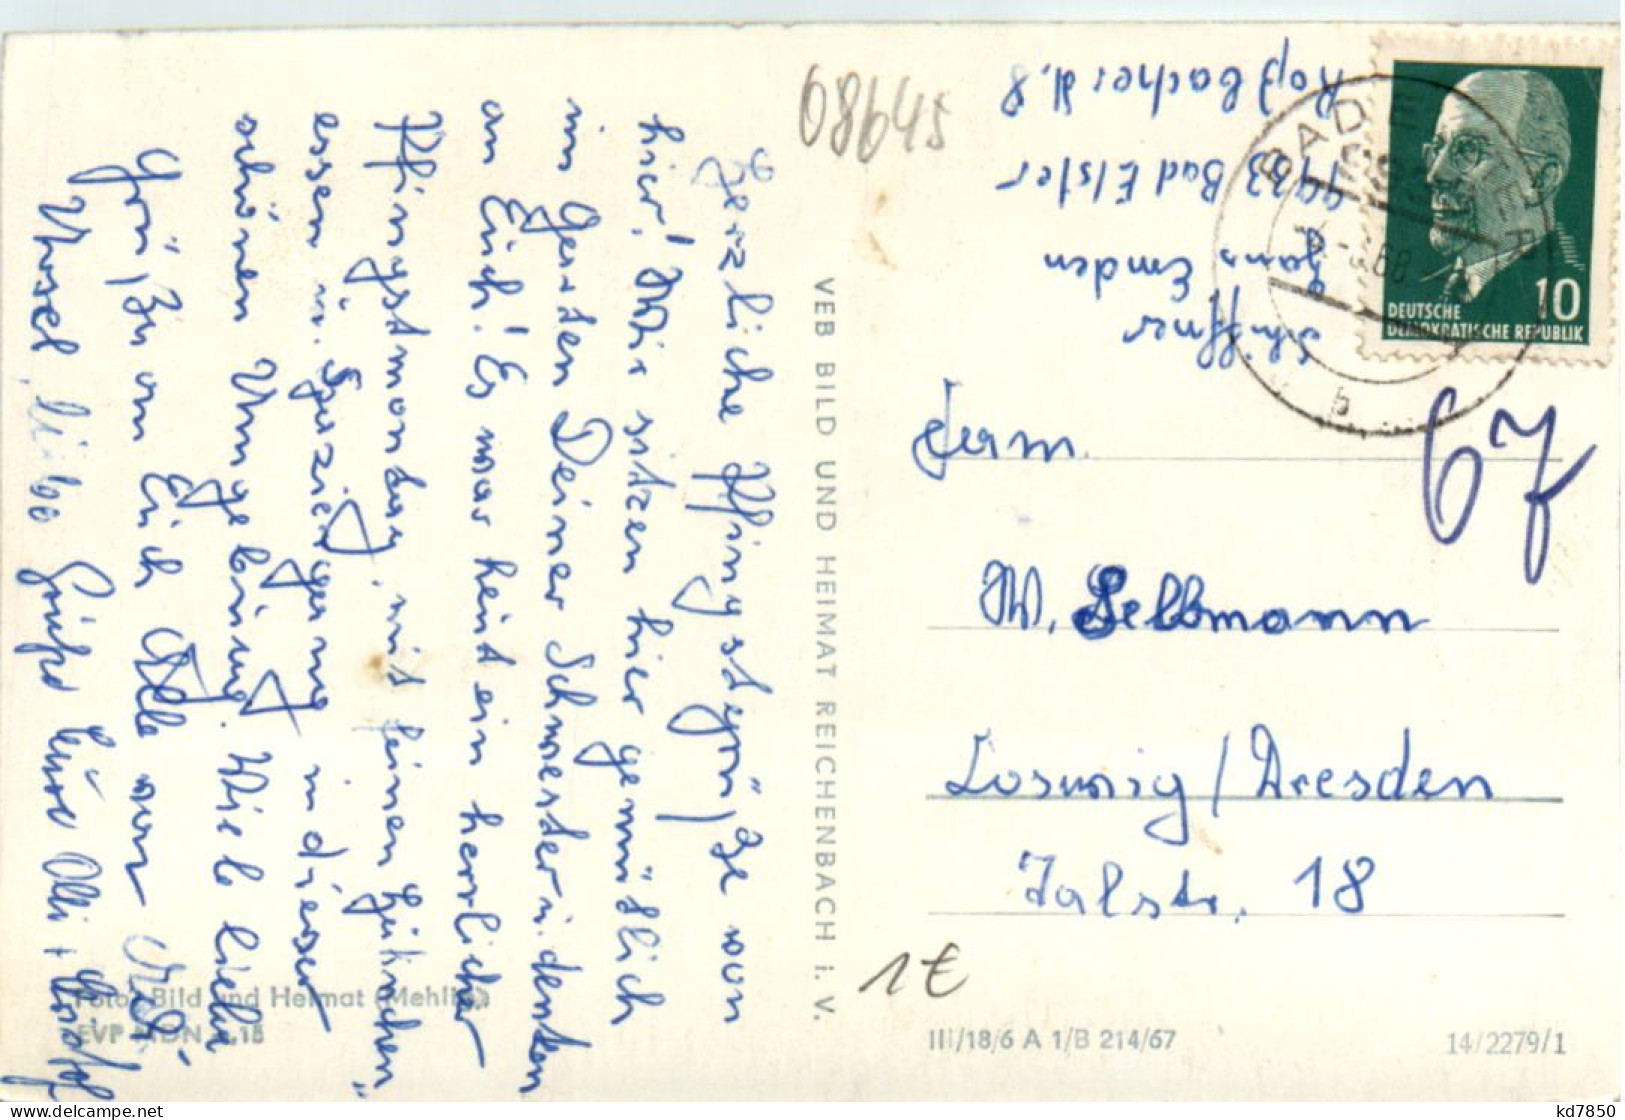 08645
Herzliche Pfingstgrüße von
hier! Wir sitzen hier gemütlich
im Garten Deiner Schwester u. denken
an Euch! Es war heut ein herrlicher
Pfingstmontag, mit feinen Hühnchen"
essen u. Spaziergang in dieser
schönen Umgebung. Viele liebe
Grüße an Euch Alle von
Ursel, liebe Grüße Eure Olli +
Foto: Bild und Heimat
EVP MDN
VEB BILD UND HEIMAT REICHENBACH i. V.
Roßbacher 8
9933 Bad Elster
Hans Emden
Schiffner
BAD ELSTER
68
b
10
DEUTSCHE
DEMOKRATISCHE REPUBLIK
67
Fam.
W. Sellmann
Loswig/Dresden
Talstr. 18
1€
III/18/6 A 1/B 214/67
14/2279/1
kd7850